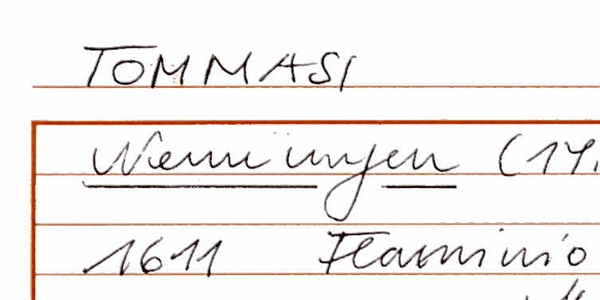 TOMMASI
Nennungen (14.
1611 Flaminio